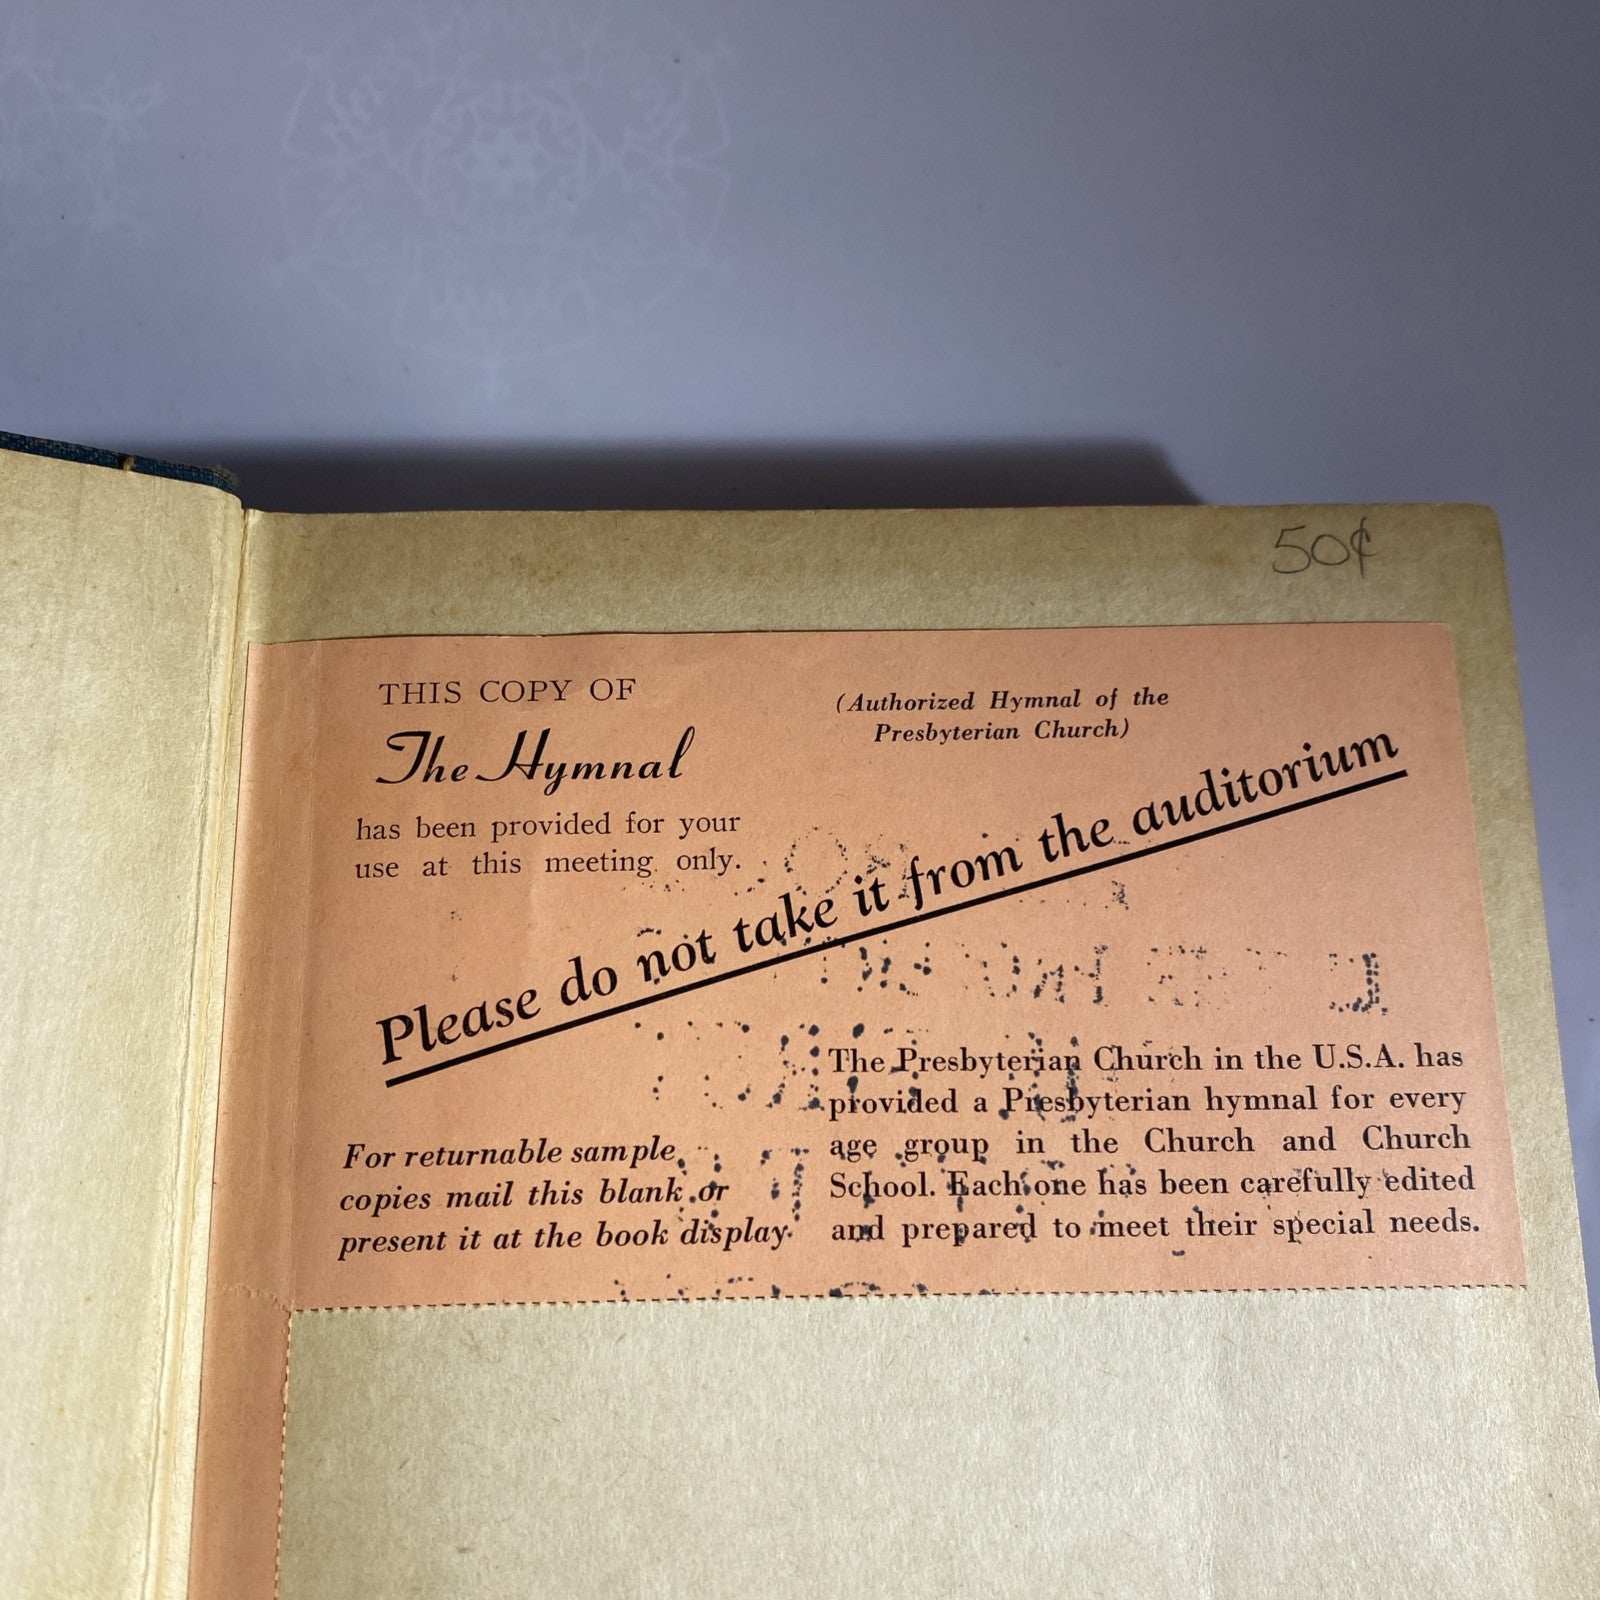 50¢
THIS COPY OF
The Hymnal
has been provided for your
use at this meeting only.
(Authorized Hymnal of the
Presbyterian Church)
Please do not take it from the auditorium
For returnable sample
copies mail this blank or
present it at the book display.
The Presbyterian Church in the U.S.A. has
provided a Presbyterian hymnal for every
age group in the Church and Church
School. Each one has been carefully edited
and prepared to meet their special needs.